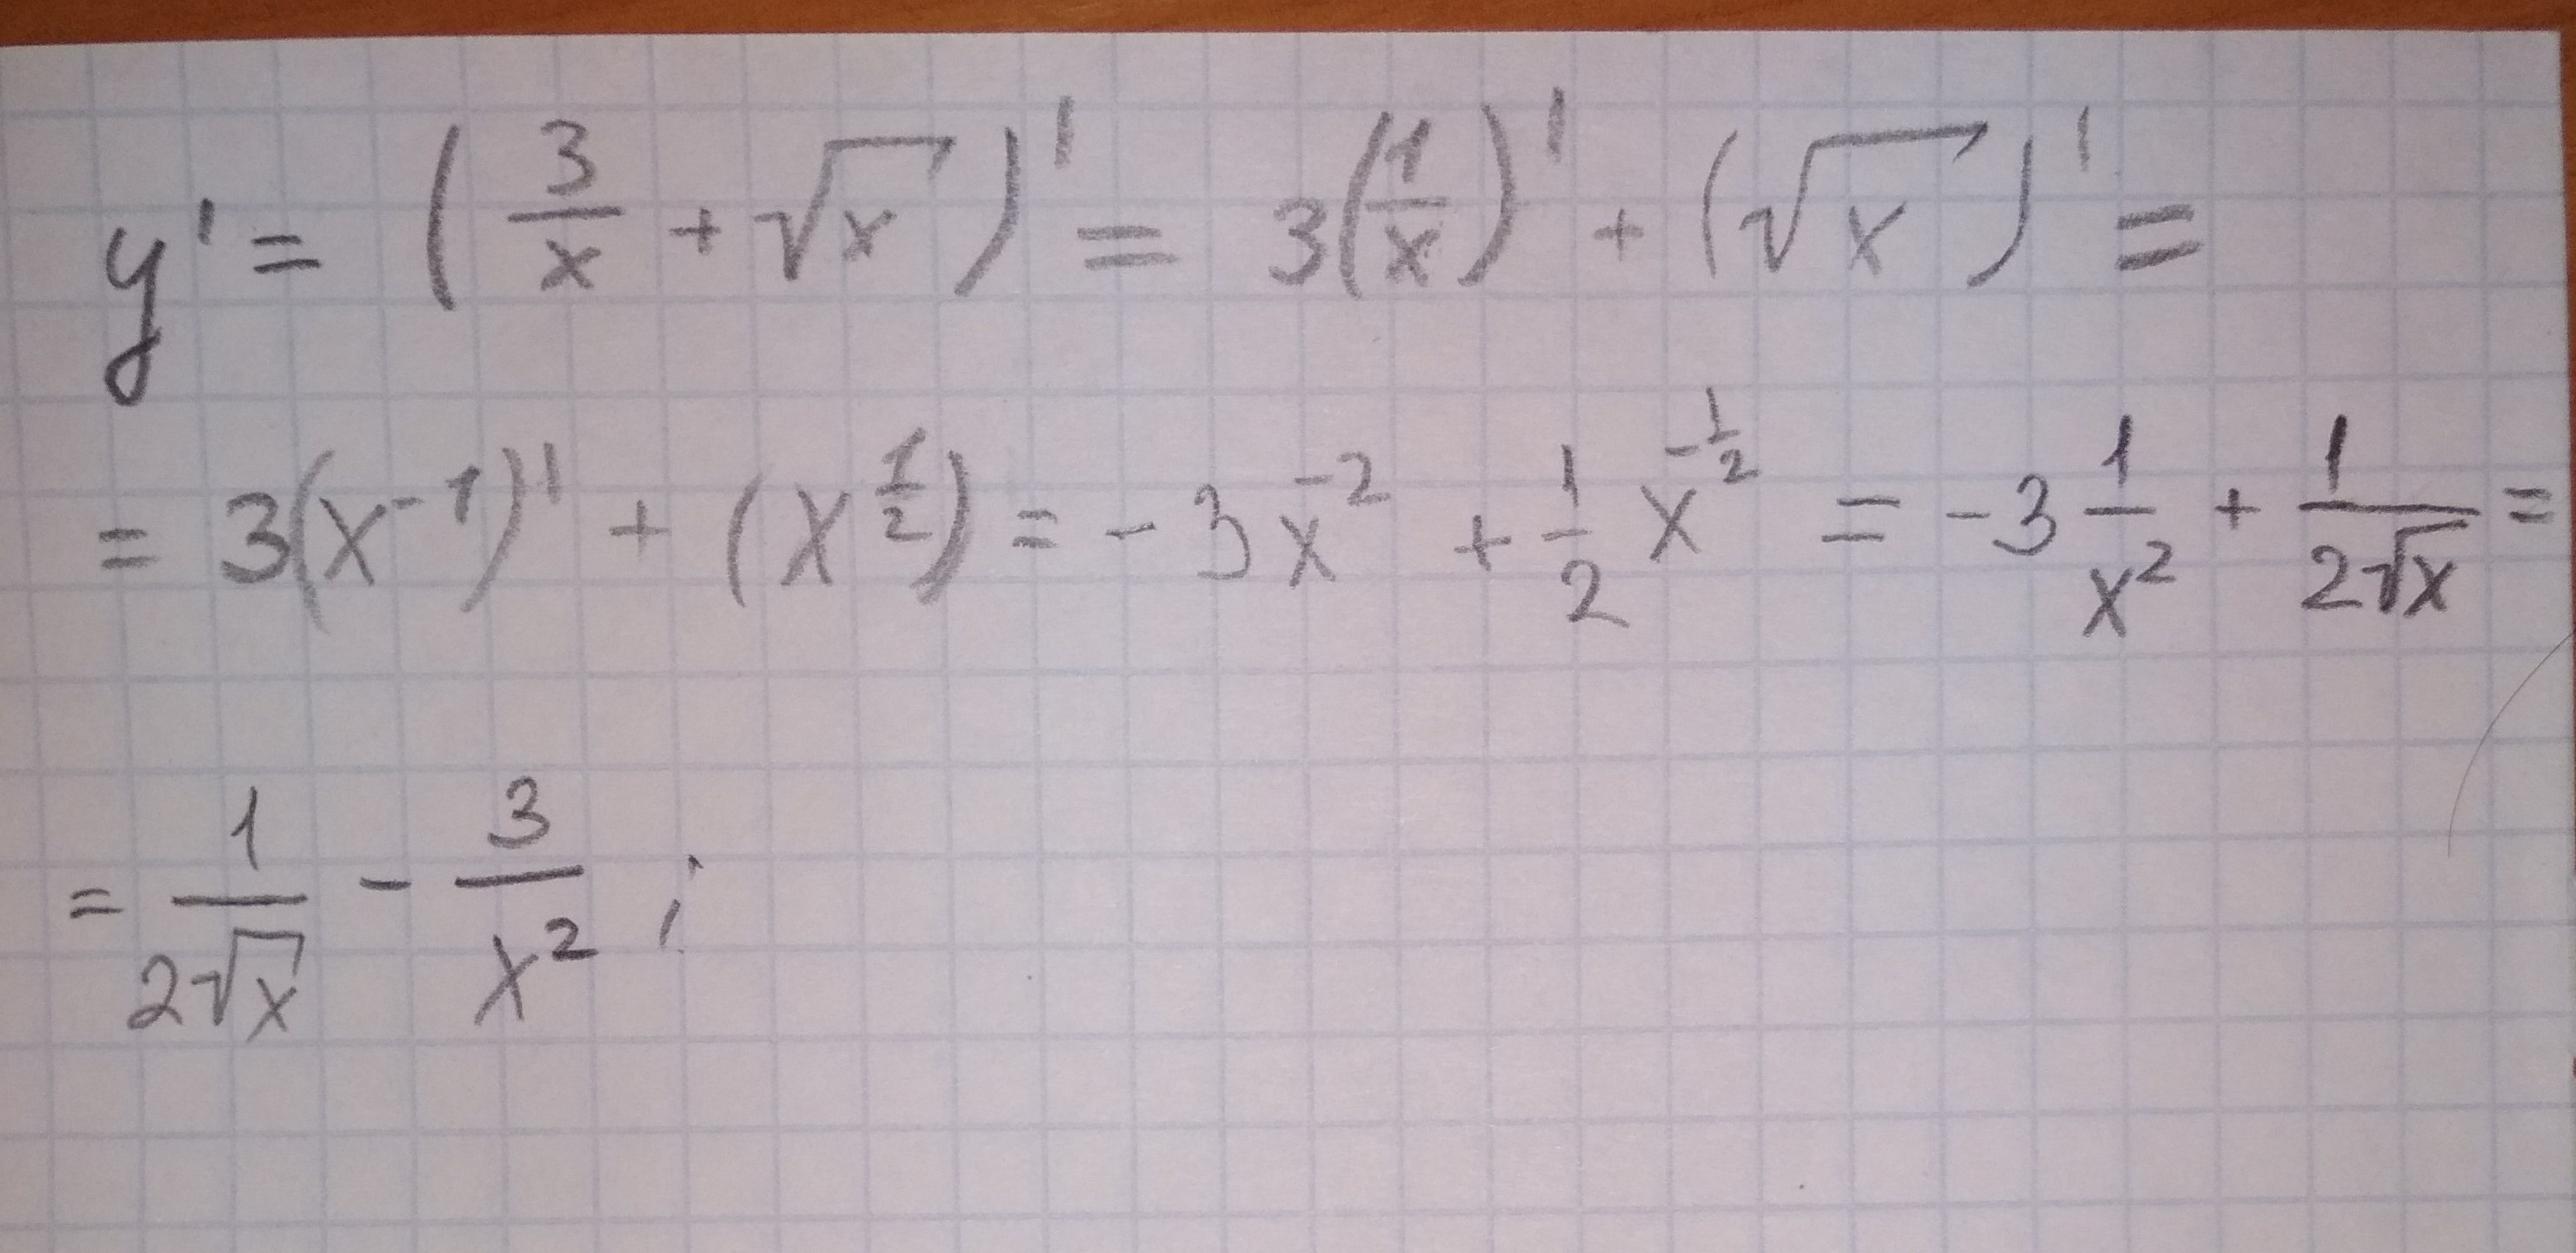 y' = (3/x + √x)' = 3(1/x)' + (√x)' =
= 3(x⁻¹)' + (x^(1/2)) = -3x⁻² + 1/2 x^(-1/2) = -3 1/x² + 1/(2√x) =
= 1/(2√x) - 3/x² ;